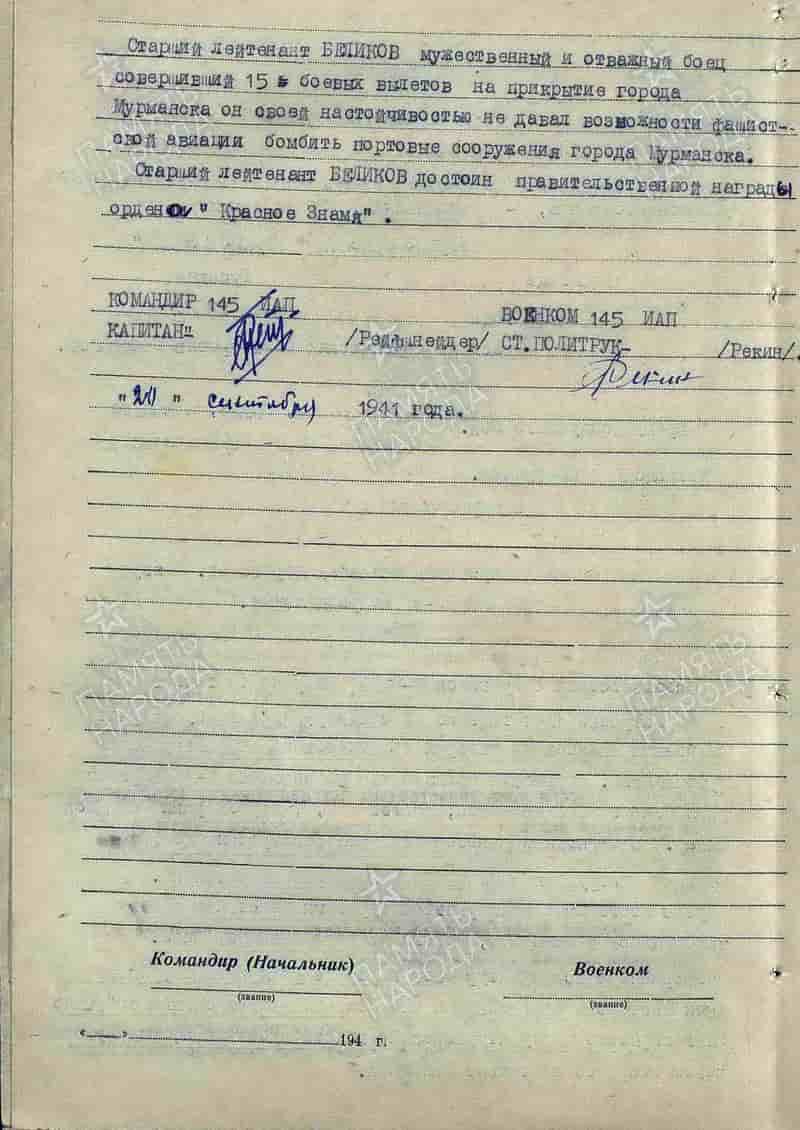 Старший лейтенант БЕЛИКОВ мужественный и отважный боец
совершивший 15 боевых вылетов на прикрытие города
Мурманска он своей настойчивостью не давал возможности фашист-
ской авиации бомбить портовые сооружения города Мурманска.
Старший лейтенант БЕЛИКОВ достоин правительственной награды
орденом " Красное Знамя" .
КОМАНДИР 145 ИАП
ВОЕНКОМ 145 ИАП
КАПИТАН- /Рейфшнейдер/ СТ.ПОЛИТРУК- /Рекин/.
Рекин
"20" сентября 1941 года.
ПАМЯТЬ НАРОДА
Командир (Начальник)
Военком
(звание)
(звание)
"___"___194 г.